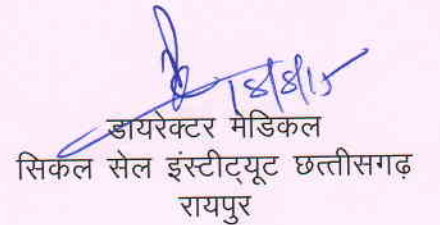 18/8/15
डायरेक्टर मेडिकल
सिकल सेल इंस्टीट्यूट छत्तीसगढ़
रायपुर